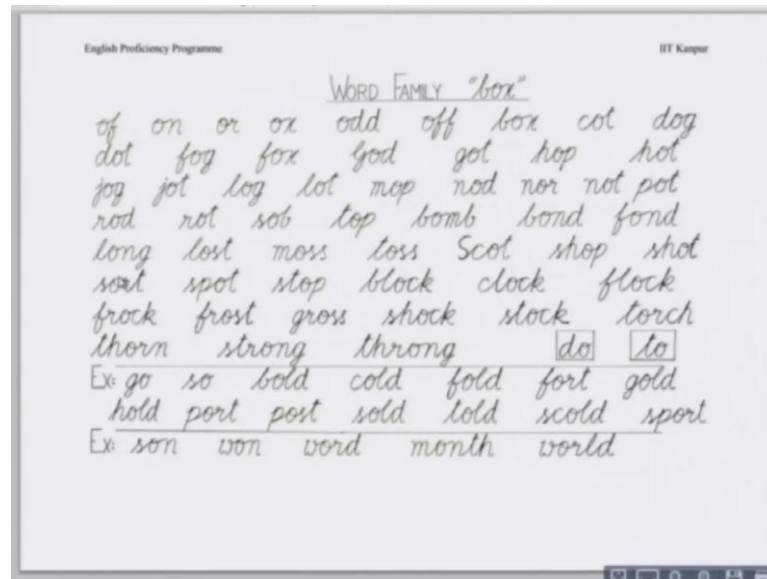 English Proficiency Programme IIT Kanpur
WORD FAMILY "box"
of on or ox odd off box cot dog
dot fog fox God got hop hot
jog jot log lot mop nod nor not pot
rod rot sob top bomb bond fond
long lost moss toss Scot shop shot
sort spot stop block clock flock
frock frost gross shock stock torch
thorn strong throng do to
Ex: go so bold cold fold fort gold
hold port post sold told scold sport
Ex: son won word month world